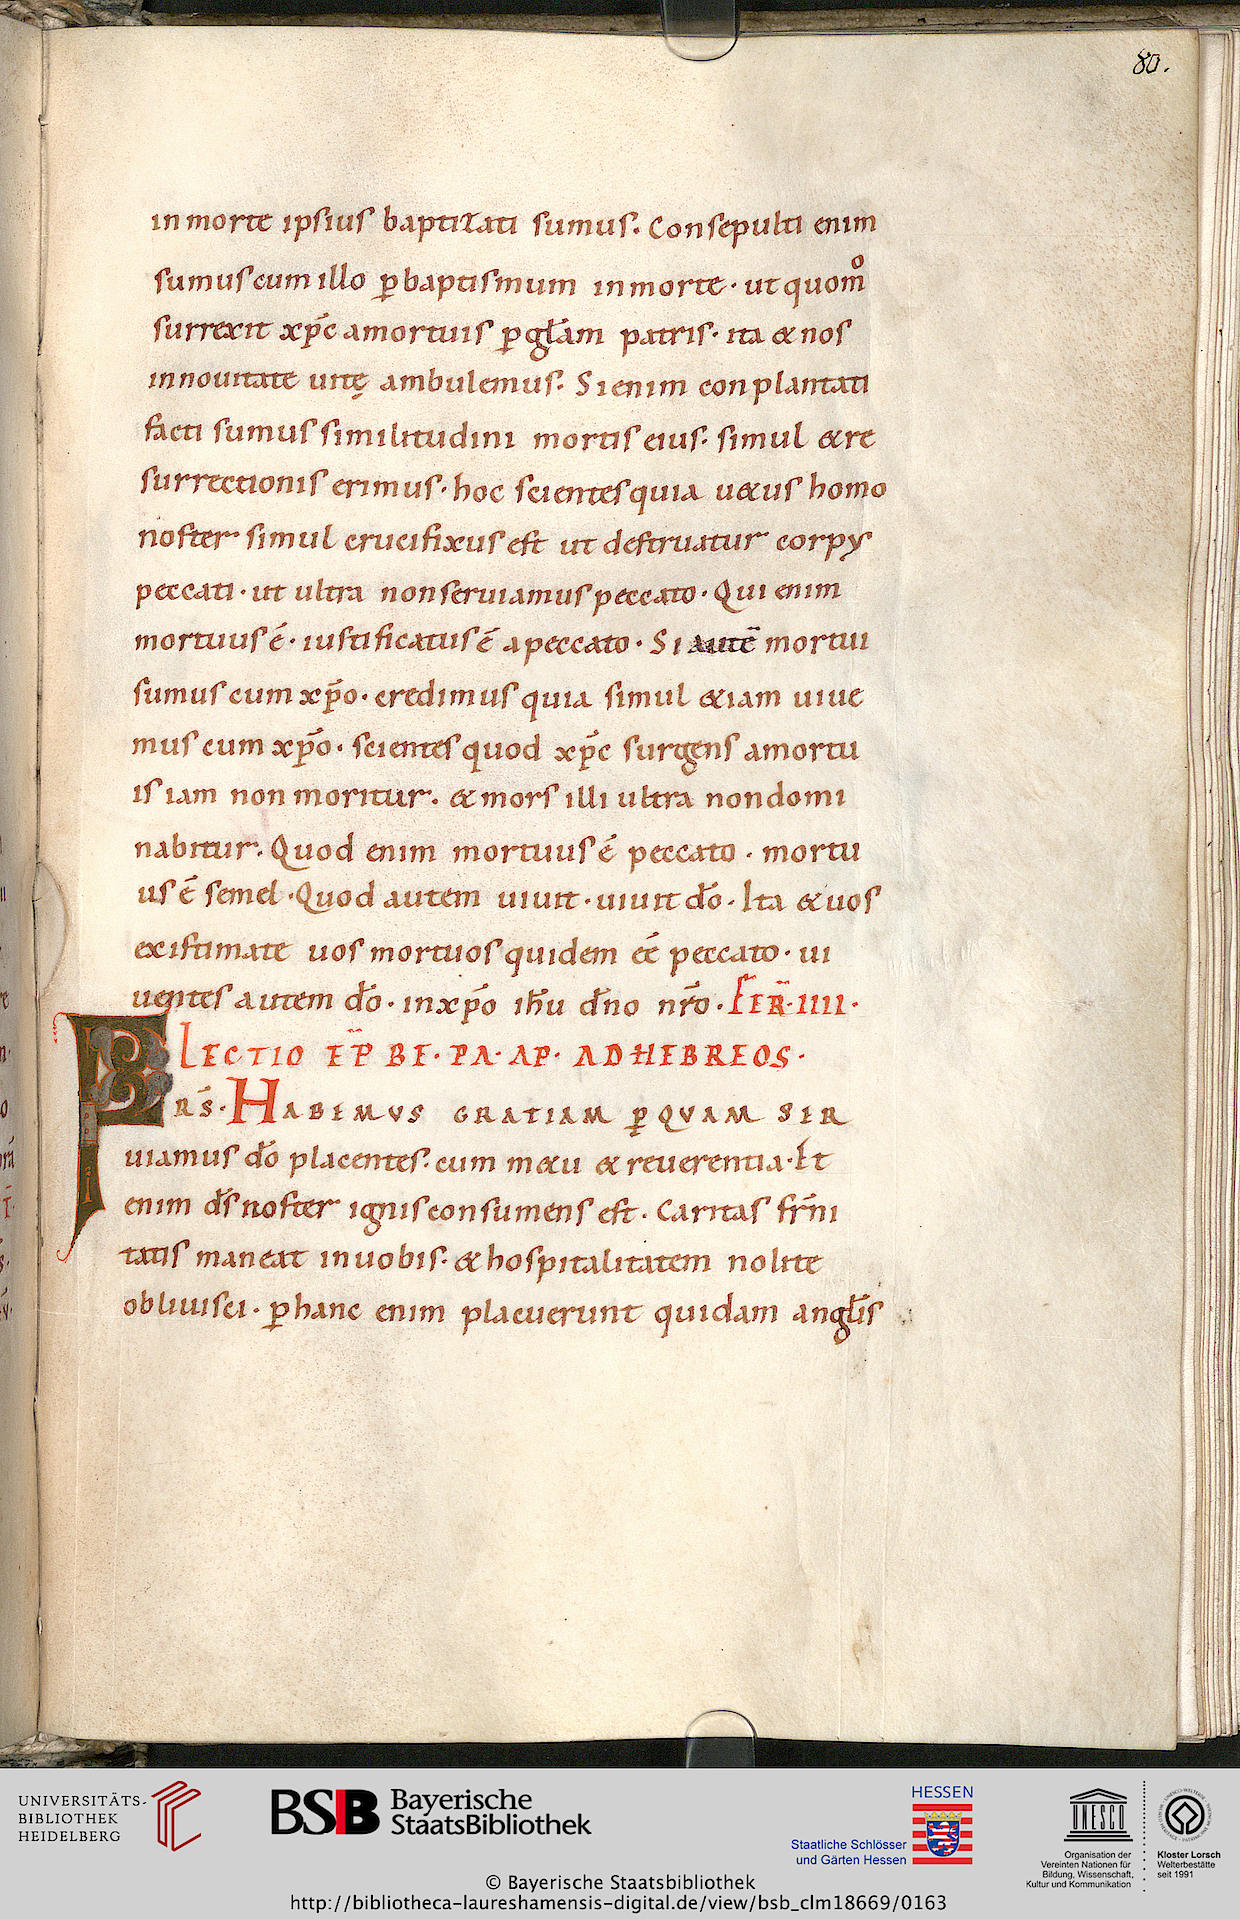 80.
in morte ipsius baptizati sumus. Consepulti enim
sumus cum illo p̱ baptismum in morte · ut quomͦ
surrexit xp̄c a mortuis p̱ gl̄am patris · ita & nos
in nouitate uitę ambulemus. Si enim conplantati
facti sumus similitudini mortis eius · simul & re
surrectionis erimus · hoc scientes quia u&us homo
noster simul crucifixus est ut destruatur corpꝰ
peccati · ut ultra non seruiamus peccato · Qui enim
mortuus ē · iustificatus ē a peccato · Si autē mortui
sumus cum xp̄o · credimus quia simul &iam uiue
mus cum xp̄o · scientes quod xp̄c surgens a mortu
is iam non moritur. & mors illi ultra non domi
nabitur. Quod enim mortuus ē peccato · mortu
us ē semel · Quod autem uiuit · uiuit d̄o · Ita & uos
existimate uos mortuos quidem eē peccato · ui
uentes autem d̄o · in xp̄o ih̄u d̄no nr̄o · FER̄ · IIII ·
LECTIO EP̄ BE · PA · AP · AD HEBREOS ·
FRS̄ · HABEMUS GRATIAM P̱ QUAM SER
uiamus d̄o placentes · cum m&u & reuerentia · Et
enim d̄s noster ignis consumens est · Caritas fr̄ni
tatis maneat in uobis · & hospitalitatem nolite
obliuisci · p̱ hanc enim placuerunt quidam angl̄is
UNIVERSITÄTS-
BIBLIOTHEK
HEIDELBERG
BSB Bayerische
StaatsBibliothek
HESSEN
Staatliche Schlösser
und Gärten Hessen
UNESCO
Organisation der
Vereinten Nationen für
Bildung, Wissenschaft,
Kultur und Kommunikation
Kloster Lorsch
Welterbestätte
seit 1991
© Bayerische Staatsbibliothek
http://bibliotheca-laureshamensis-digital.de/view/bsb_clm18669/0163